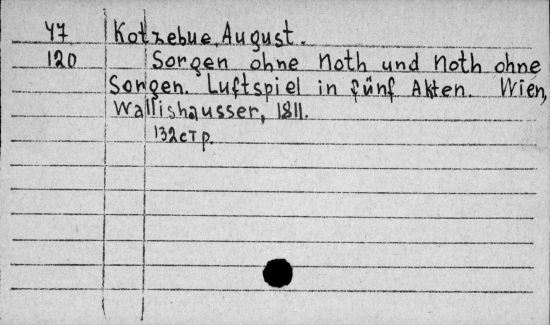 47 Kotzebue, August.
120 Sorgen ohne Noth und Noth ohne
Sorgen. Luftspiel in fünf Akten. Wien,
Wallishausser, 1811.
132 стр.